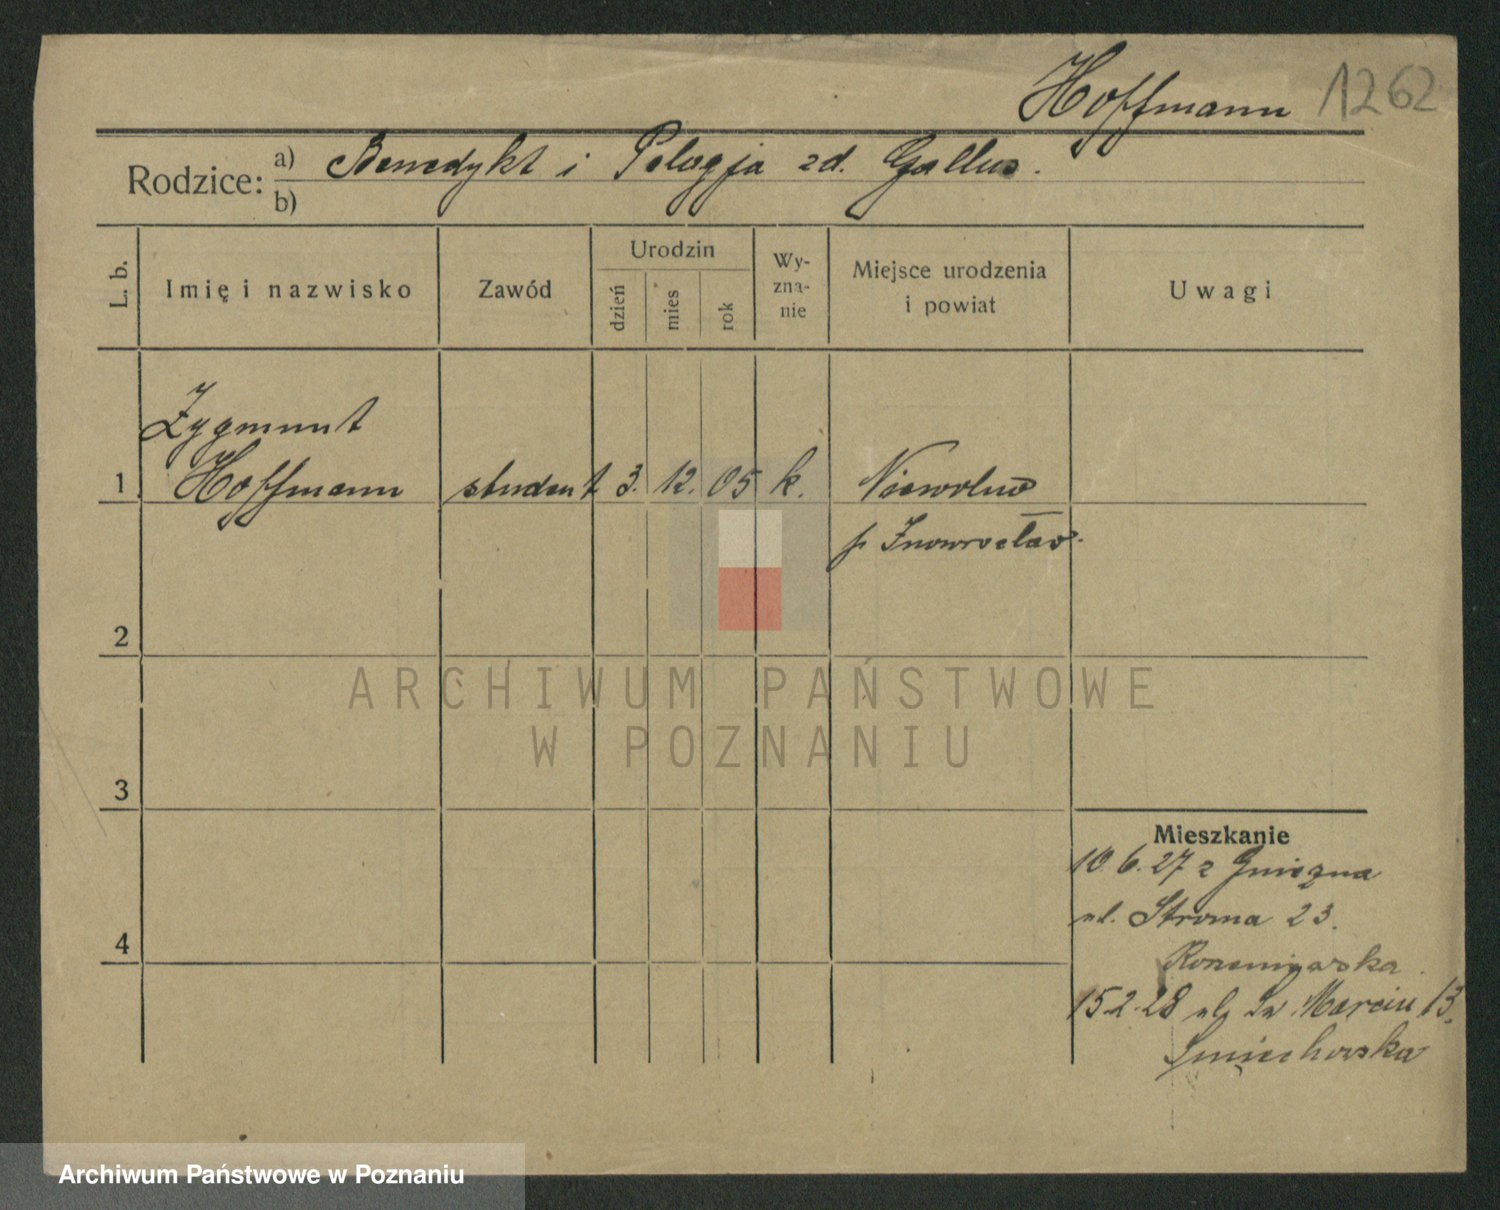 Hoffmann 1262
Rodzice: a) Benedykt i Pelagja zd. Gallus.
b)
L. b.
Imię i nazwisko
Zawód
Urodzin
dzień
mies
rok
Wy-
zna-
nie
Miejsce urodzenia
i powiat
Uwagi
Zygmunt
1 Hoffmann student 3. 12. 05 k. Niewolno
p Inowrocław.
2
ARCHIWUM PAŃSTWOWE
W POZNANIU
3
Mieszkanie
10.6.27 z Gniezna
ul. Stroma 23.
4
15.2.28 ul. Św Marcin 13.
Śmiechowska
Archiwum Państwowe w Poznaniu